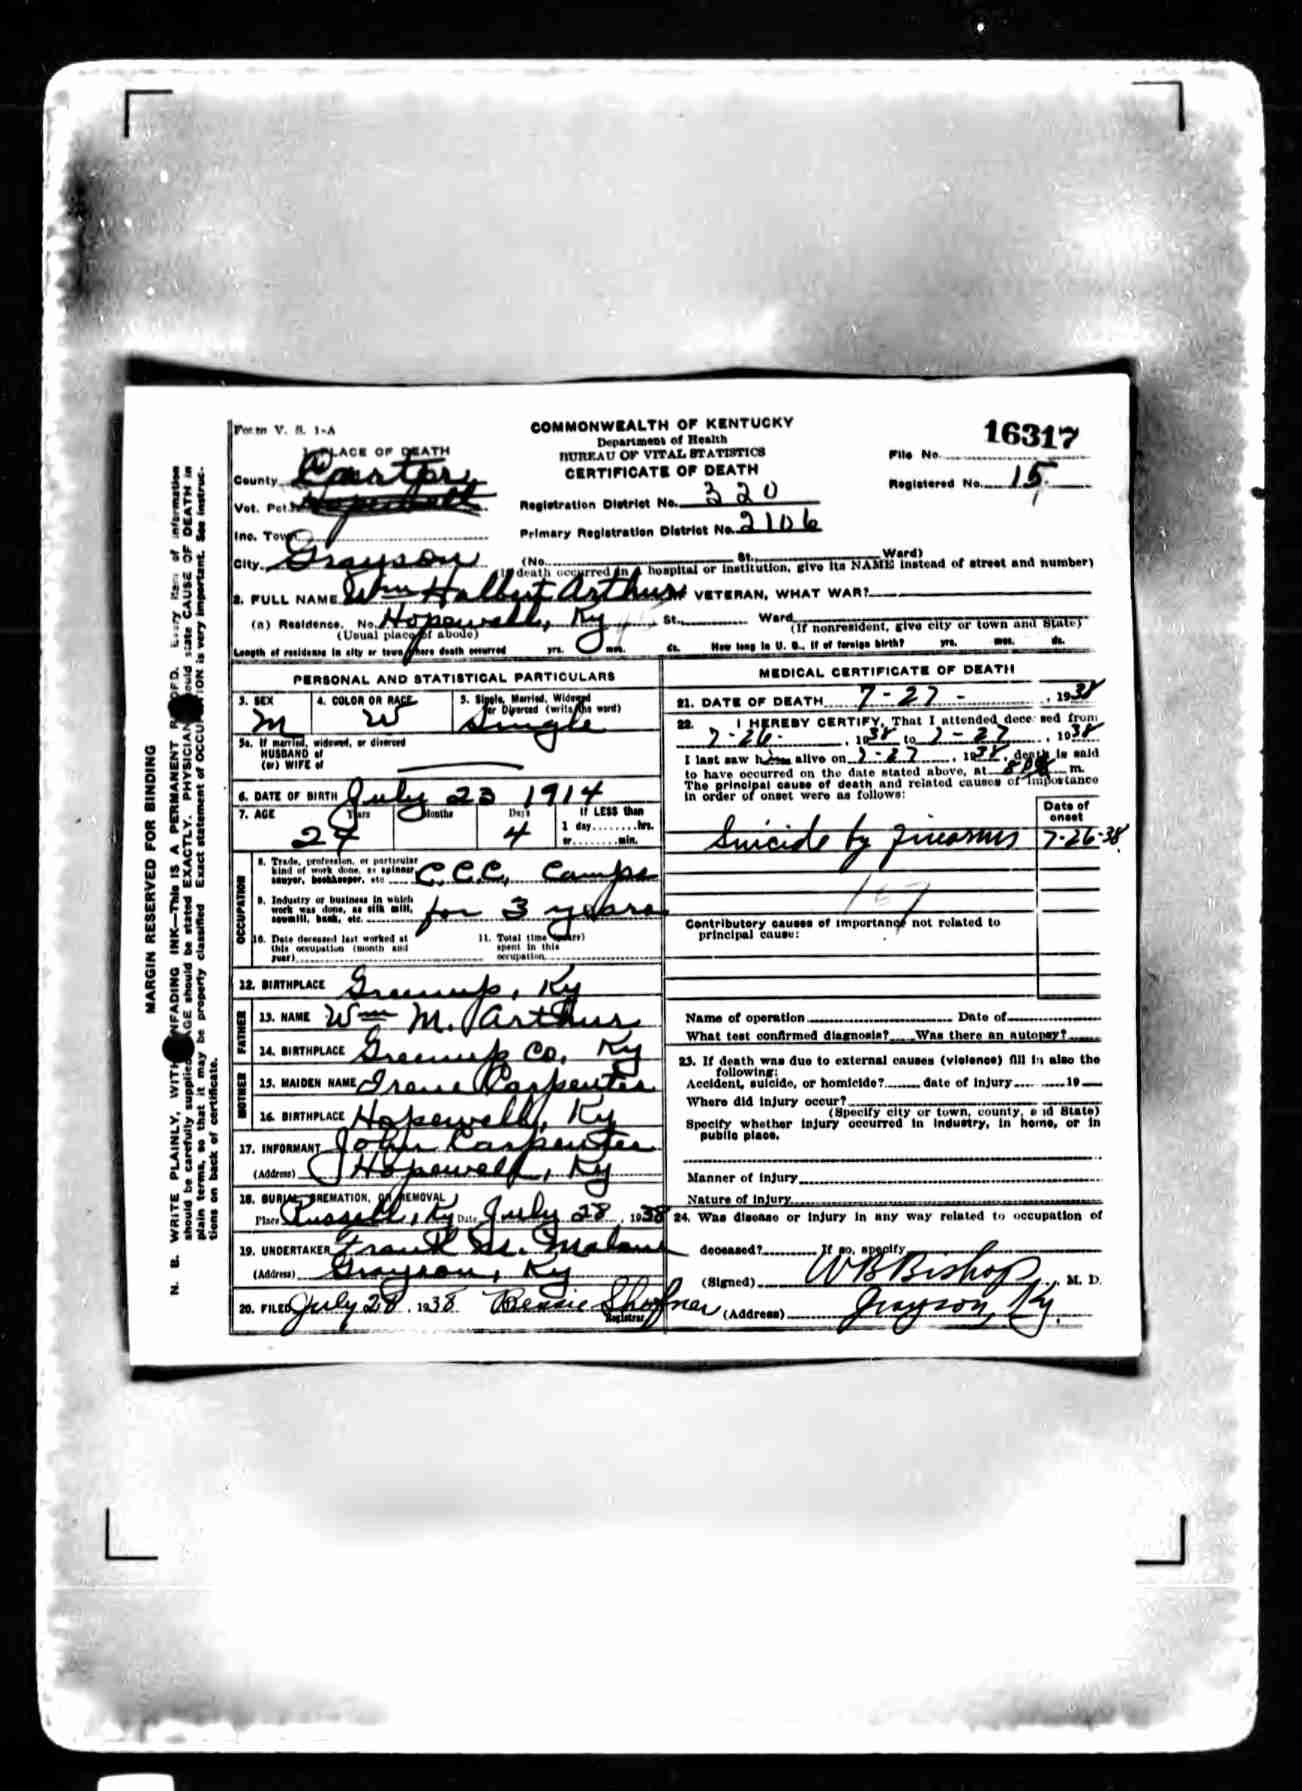 Form V. S. 1-A
COMMONWEALTH OF KENTUCKY
Department of Health
BUREAU OF VITAL STATISTICS
CERTIFICATE OF DEATH
16317
File No.
Registered No. 15
Registration District No. 320
Primary Registration District No. 2106
1. PLACE OF DEATH
County Carter
Vot. Pct. Hopewell
Inc. Town
City Grayson (No. St. Ward)
(If death occurred in a hospital or institution, give its NAME instead of street and number)
2. FULL NAME Wm Halbert Arthur VETERAN, WHAT WAR?
(a) Residence. No. Hopewell, Ky St. Ward
(Usual place of abode) (If nonresident, give city or town and State)
Length of residence in city or town where death occurred yrs. mos. ds. How long in U. S., if of foreign birth? yrs. mos. ds.
PERSONAL AND STATISTICAL PARTICULARS
3. SEX M
4. COLOR OR RACE W
5. Single, Married, Widowed or Divorced (write the word) Single
5a. If married, widowed, or divorced
HUSBAND of
(or) WIFE of
6. DATE OF BIRTH July 23 1914
7. AGE Years Months Days If LESS than
24 4 1 day hrs.
or min.
OCCUPATION
8. Trade, profession, or particular
kind of work done, as spinner,
sawyer, bookkeeper, etc C.C.C. Camps
9. Industry or business in which
work was done, as silk mill,
sawmill, bank, etc. for 3 years
10. Date deceased last worked at
this occupation (month and
year)
11. Total time (years)
spent in this
occupation
12. BIRTHPLACE Greenup, Ky
FATHER
13. NAME Wm M. Arthur
14. BIRTHPLACE Greenup Co. Ky
MOTHER
15. MAIDEN NAME Irene Carpenter
16. BIRTHPLACE Hopewell, Ky
17. INFORMANT John Carpenter
(Address) Hopewell, Ky
18. BURIAL, CREMATION, OR REMOVAL
Place Russell, Ky Date July 28, 1938
19. UNDERTAKER Frank M. Malone
(Address) Grayson, Ky
20. FILED July 28, 1938 Bessie Shofner
Registrar
MEDICAL CERTIFICATE OF DEATH
21. DATE OF DEATH 7-27-, 1938
22. I HEREBY CERTIFY, That I attended deceased from
7-26-, 1938 to 7-27, 1938
I last saw him alive on 7-27, 1938, death is said
to have occurred on the date stated above, at m.
The principal cause of death and related causes of importance
in order of onset were as follows:
Date of
onset
Suicide by firearms 7-26-38
167
Contributory causes of importance not related to
principal cause:
Name of operation Date of
What test confirmed diagnosis? Was there an autopsy?
23. If death was due to external causes (violence) fill in also the
following:
Accident, suicide, or homicide? date of injury 19
Where did injury occur?
(Specify city or town, county, and State)
Specify whether injury occurred in industry, in home, or in
public place.
Manner of injury
Nature of injury
24. Was disease or injury in any way related to occupation of
deceased? If so, specify
(Signed) W B Bishop, M. D.
(Address) Grayson, Ky.
MARGIN RESERVED FOR BINDING
N. B. WRITE PLAINLY, WITH UNFADING INK—This IS A PERMANENT RECORD. Every item of information
should be carefully supplied. AGE should be stated EXACTLY. PHYSICIAN should state CAUSE OF DEATH in
plain terms, so that it may be properly classified. Exact statement of OCCUPATION is very important. See instruc-
tions on back of certificate.